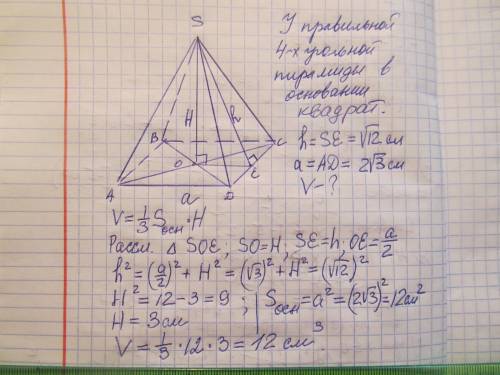 S
У правильной
4-х угольной
пирамиды в
основании
квадрат.
h = SE = √12 см
a = AD = 2√3 см
V - ?
H
h
B
C
O
E
A
a
D
V = 1/3 Sосн · H
Рассм. Δ SOE; SO = H; SE = h; OE = a/2
h² = (a/2)² + H² = (√3)² + H² = (√12)²
H² = 12 - 3 = 9 ; | Sосн = a² = (2√3)² = 12 см²
H = 3 см
V = 1/3 · 12 · 3 = 12 см³.